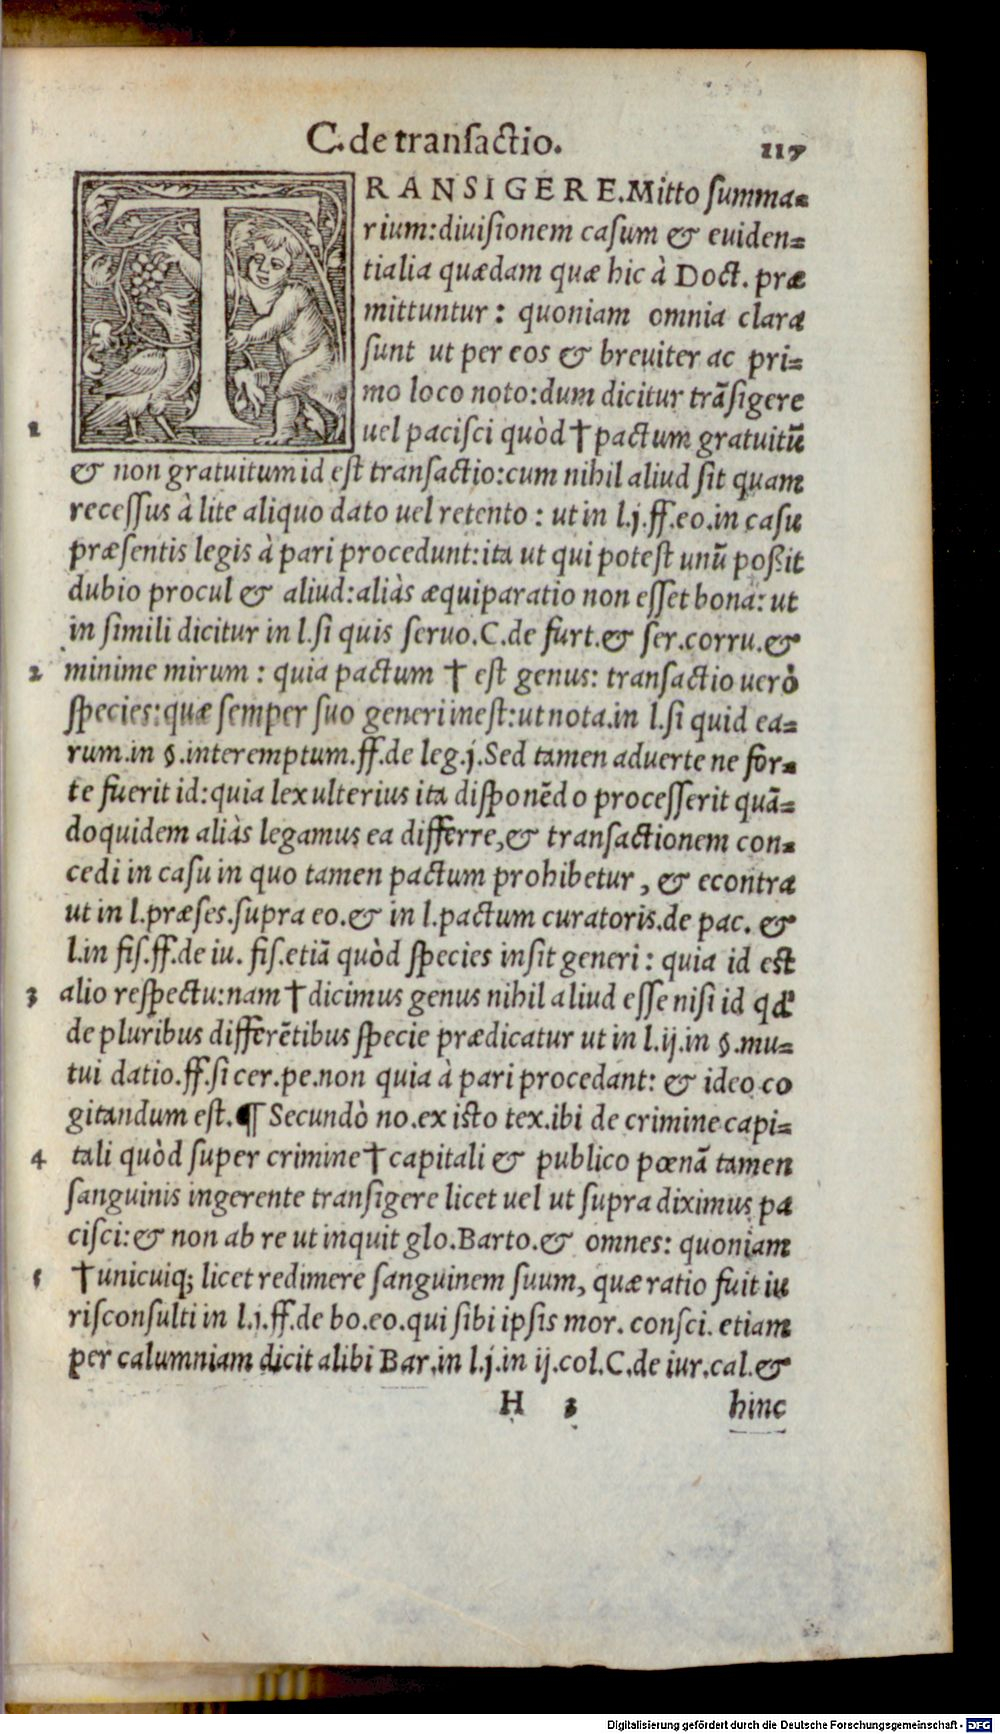 C. de transactio.
117
TRANSIGERE. Mitto summa=
rium: divisionem casum & eviden=
tialia quædam quæ hic à Doct. præ
mittuntur : quoniam omnia claræ
sunt ut per eos & breviter ac pri=
mo loco noto: dum dicitur trãsigere
1 uel pacisci quòd † pactum gratuitũ
& non gratuitum id est transactio: cum nihil aliud sit quam
recessus à lite aliquo dato uel retento : ut in l.j.ff.eo.in casu
præsentis legis à pari procedunt: ita ut qui potest unũ poßit
dubio procul & aliud: aliàs æquiparatio non esset bona: ut
in simili dicitur in l.si quis seruo.C.de furt.& ser.corru.&
2 minime mirum : quia pactum † est genus: transactio uerò
species: quæ semper suo generi inest: ut nota.in l.si quid ea=
rum.in §.interemptum.ff.de leg.j.Sed tamen adverte ne for=
te fuerit id: quia lex ulterius ita disponẽdo processerit quã=
doquidem aliàs legamus ea differre, & transactionem con=
cedi in casu in quo tamen pactum prohibetur, & econtra
ut in l.præses.supra eo.& in l.pactum curatoris.de pac. &
l.in fis.ff.de iu. fis.etiã quòd species insit generi : quia id est
3 alio respectu: nam † dicimus genus nihil aliud esse nisi id qđ
de pluribus differẽtibus specie prædicatur ut in l.ij.in §.mu=
tui datio.ff.si cer.pe.non quia à pari procedant: & ideo co
gitandum est. ¶ Secundò no.ex isto tex.ibi de crimine capi=
4 tali quòd super crimine † capitali & publico pœnã tamen
sanguinis ingerente transigere licet uel ut supra diximus pa
cisci: & non ab re ut inquit glo.Barto.& omnes: quoniam
5 † unicuiq; licet redimere sanguinem suum, quæ ratio fuit iu
risconsulti in l.j.ff.de bo.eo.qui sibi ipsis mor. consci. etiam
per calumniam dicit alibi Bar.in l.j.in ij.col.C.de iur.cal.&
H 3
hinc
Digitalisierung gefördert durch die Deutsche Forschungsgemeinschaft - DFG